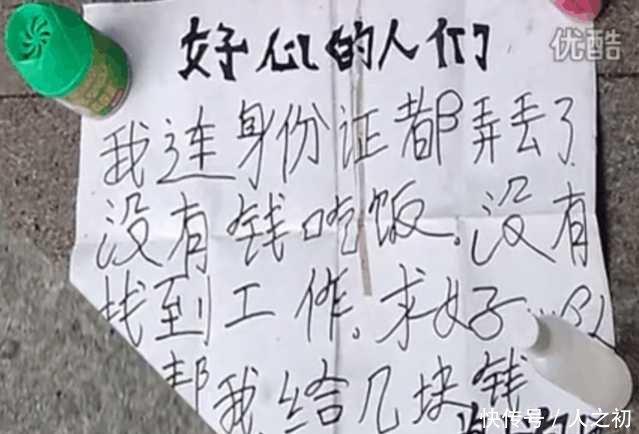 优酷
好心的人们
我连身份证都弄丢了
没有钱吃饭。没有
找到工作。求好
帮我给几块钱
快传号 / 人之初